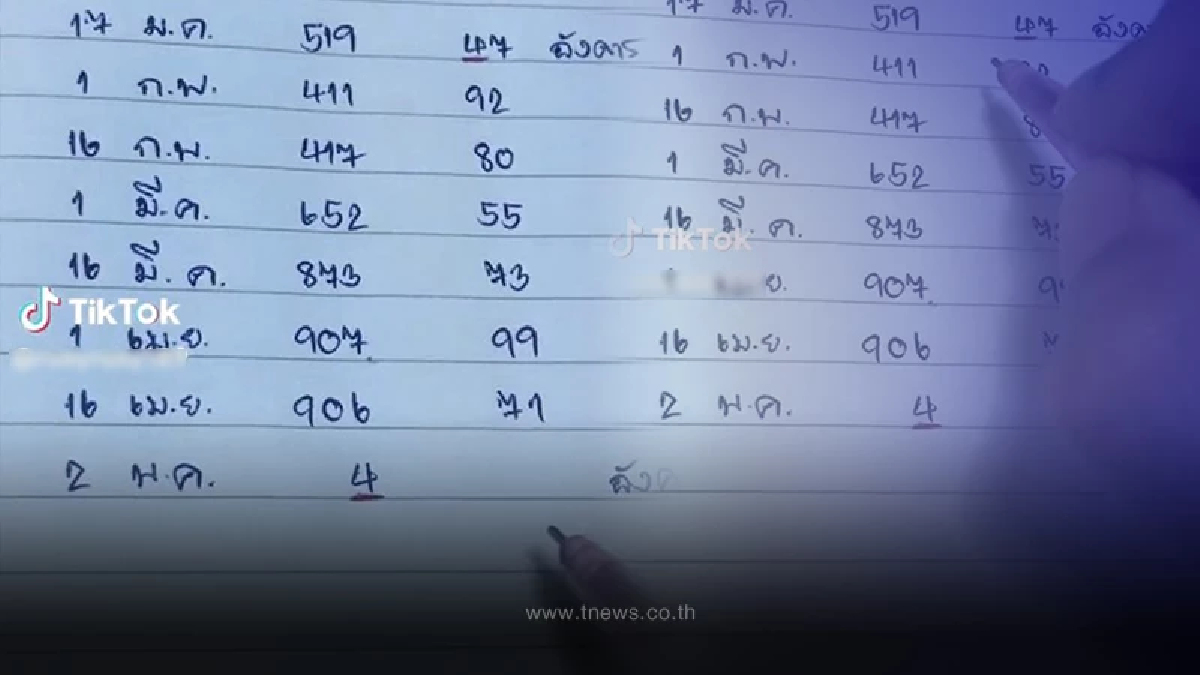 17 ม.ค. 519 47 อังคาร
1 ก.พ. 411 92
16 ก.พ. 417 80
1 มี.ค. 652 55
16 มี.ค. 873 73
TikTok
1 เม.ย. 907 99
16 เม.ย. 906 71
2 พ.ค. 4
17 ม.ค. 519 47
1 ก.พ. 411
16 ก.พ. 417 8
1 มี.ค. 652 55
16 มี.ค. 873
TikTok
ย. 907
16 เม.ย. 906
2 พ.ค. 4
www.tnews.co.th